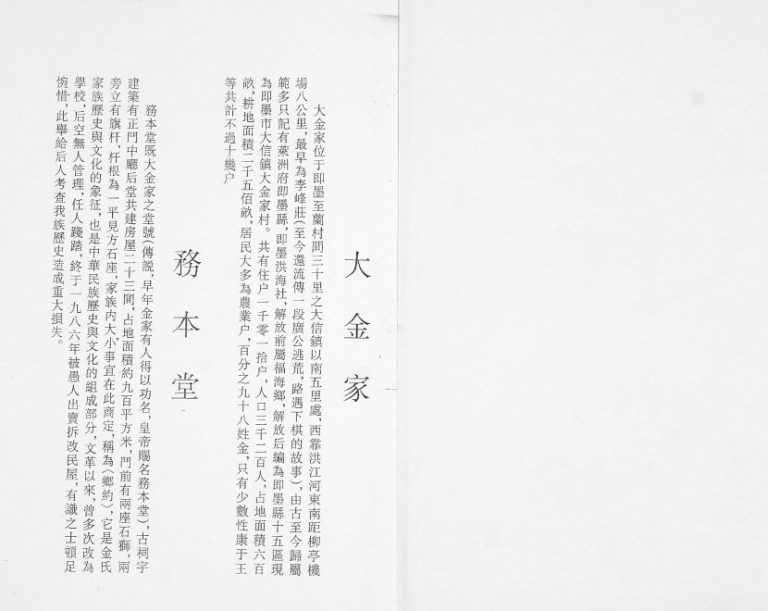 大金家
大金家位于即墨至蘭村間三十里之大信鎮以南五里處，西靠洪江河東南距柳亭機
場八公里，最早為李峰莊（至今還流傳一段廣公逃荒，路遇下棋的故事），由古至今歸屬
範多只記有萊洲府即墨縣，即墨洪海社，解放前屬福海鄉，解放后編為即墨縣十五區現
為即墨市大信鎮大金家村。共有住户一千零一拾户，人口三千二百人，占地面積六百
畝，耕地面積二千五佰畝，居民大多為農業户，百分之九十八姓金，只有少數性康于王
等共計不過十幾户
務本堂
務本堂既大金家之堂號（傳説，早年金家有人得以功名，皇帝賜名務本堂），古祠宇
建築有正門中廳后堂共建房屋二十三間，占地面積約九百平方米，門前有兩座石獅，兩
旁立有旗杆，杆根為一平見方石座，家族内大小事宜在此商定，稱為〈鄉約〉，它是金氏
家族歷史與文化的象征，也是中華民族歷史與文化的組成部分，文革以來，曾多次改為
學校，后空無人管理，任人踐踏，終于一九八六年被愚人出賣拆改民屋，有識之士頓足
惋惜，此舉給后人考查我族歷史造成重大損失。